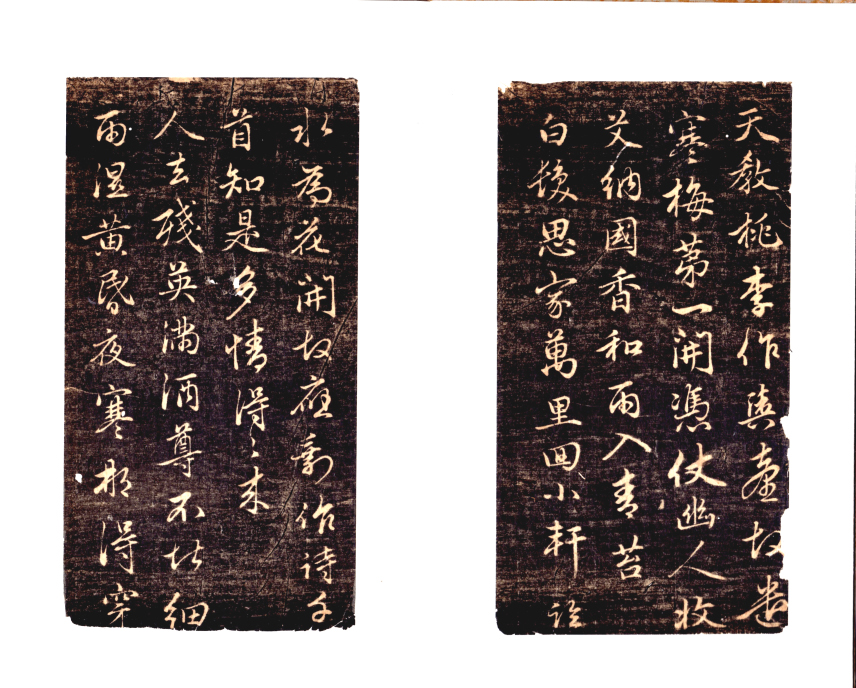 天教桃李作輿臺故遣
寒梅第一開憑仗幽人收
艾納國香和雨入青苔
白髮思家萬里回小軒臨
水為花開故應剩作詩千
首知是多情得〻來
人去殘英滿酒尊不堪細
雨濕黃昏夜寒那得穿